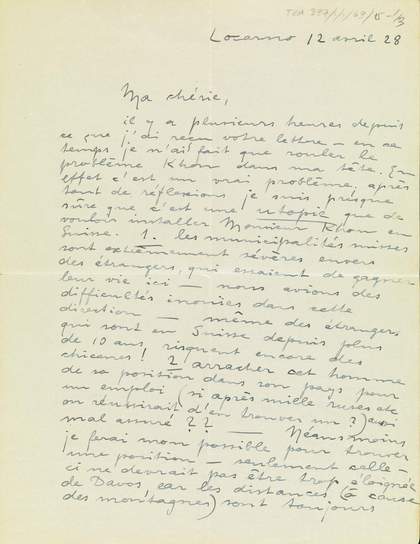 Locarno 12 avril 28
Ma chérie,
il y a plusieurs heures depuis
ce que j'ai reçu votre lettre – en ce
temps je n'ai fait que rouler le
problème Khom dans ma tête. En
effet c'est un vrai problème, après
tant de réflexions je suis presque
sûre que c'est une utopie que de
vouloir installer Monsieur Khom en
Suisse. 1. les municipalités suisses
sont extrêmement sévères envers
des étrangers, qui essaient de gagner
leur vie ici — nous avions des
difficultés inouies dans cette
direction — même des étrangers
qui sont en Suisse depuis plus
de 10 ans, risquent encore des
chicanes! 2 arracher cet homme
de sa position dans son pays pour
un emploi (si après mille ruses etc
on réussirait d'en trouver un?)
mal assuré?? — Néansmoins
je ferai mon possible pour trouver
une position — seulement celle-
ci ne devrait pas être trop éloignée
de Davos car les distances (à cause
des montagnes) sont toujours